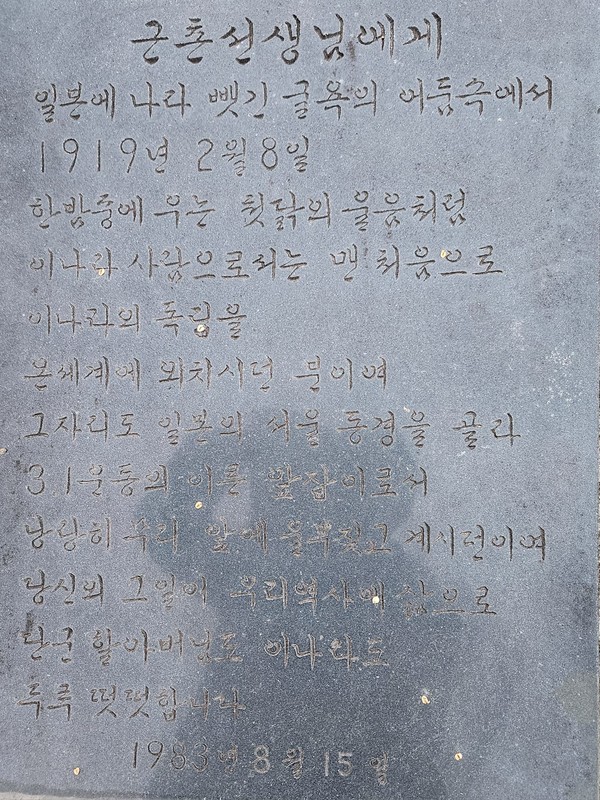 근촌선생님에게
일본에 나라 뺏긴 굴욕의 어둠속에서
1919년 2월 8일
한밤중에 우는 첫닭의 울음처럼
이나라 사람으로서는 맨 처음으로
이나라의 독립을
온세계에 외치시던 분이여
그자리도 일본의 서울 동경을 골라
3.1운동의 이른 앞잡이로서
낭랑히 우리 앞에 울부짖고 계시던이여
당신의 그일이 우리역사에 있으로
단군 할아버님도 이나라도
두루 떳떳합니다
1983년 8월 15일